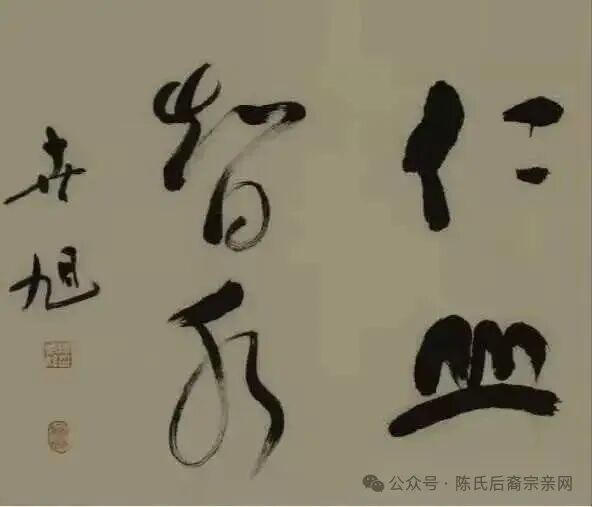 仁山
智水
世旭
公众号·陈氏后裔宗亲网